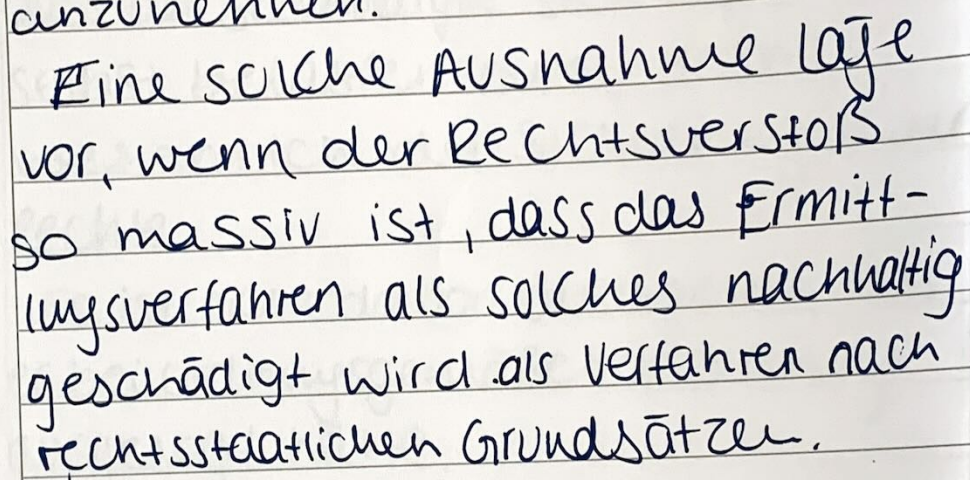 anzunehmen.
Eine solche Ausnahme läge
vor, wenn der Rechtsverstoß
so massiv ist, dass das Ermitt-
lungsverfahren als solches nachhaltig
geschädigt wird als Verfahren nach
rechtsstaatlichen Grundsätzen.